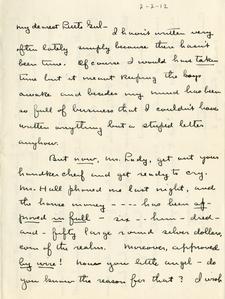 2-2-12
my dearest Bests Girl-
I havn't written very
often lately simply because there hasn't
been time. Of course I would have taken
time but it meant keeping the boys
awake and besides my mind has been
so full of business that I couldn't have
written anything but a stupid letter
anyhow.
But now, Ms. Lady, get out your
handkerchief and get ready to cry.
Mr. Hall phoned me last night, and
the house money ---- has been ap-
proved in full - six - hun - dred -
and - fifty large round silver dollars,
coin of the realm. Moreover, approved
by wire! Now you little angel - do
you know the reason for that? I wish